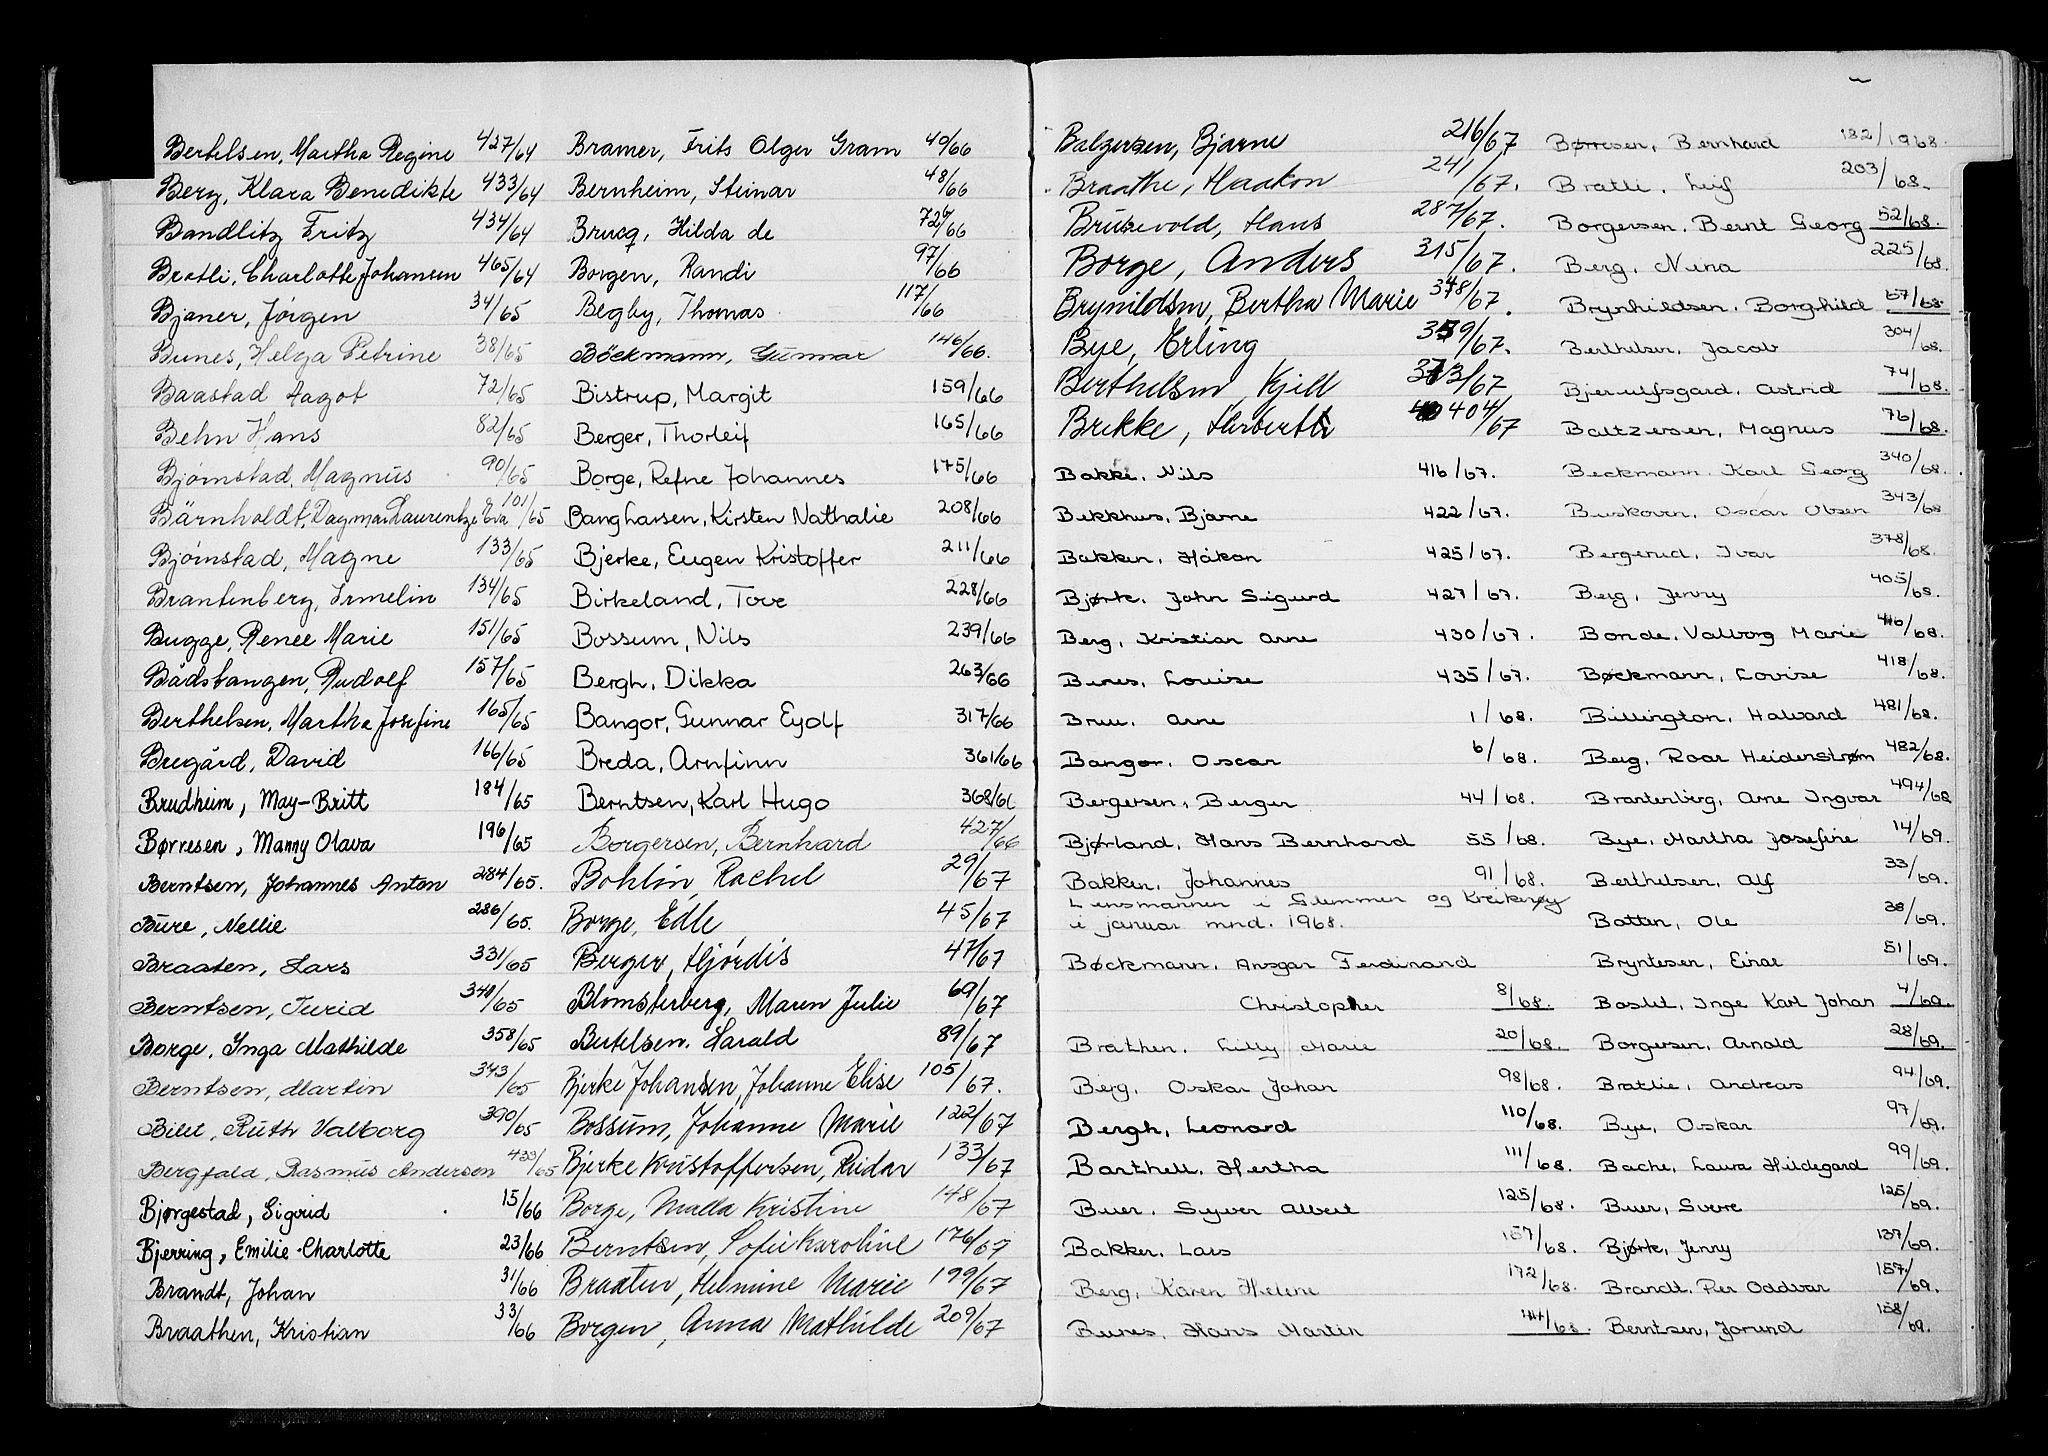 Bertelsen, Martha Regine 427/64
Berg, Klara Benedikte 433/64
Bandlitz Fritz 434/64
Bratli, Charlotte Johansen 465/64
Bjaner, Jörgen 34/65
Bunes, Helga Petrine 38/65
Baastad Aagot 72/65
Behn Hans 82/65
Bjørnstad, Magnus 90/65
Bärnholdt, Dagmar Laurentze Eva 101/65
Bjørnstad, Magne 133/65
Brantenberg, Irmelin 134/65
Bugge, Renee Marie 151/65
Bådstangen, Rudolf 157/65
Berthelsen, Martha Josefine 165/65
Bregård, David 166/65
Brudheim, May-Britt 184/65
Børresen, Manny Olava 196/65
Berntsen, Johannes Anton 284/65.
Bure, Nellie 286/65.
Braaten, Lars 331/65
Berntsen, Turid 340/65
Borge, Inga Mathilde 358/65
Berntsen, Martin 343/65
Bilet, Ruth Valborg 390/65
Bergfald, Rasmus Andersen 433/65
Bjørgestad, Sigrid 15/66
Bjerring, Emilie Charlotte 23/66
Brandt, Johan 31/66
Braathen, Kristian 33/66
Bramer, Frits Olger Gram 49/66
Bernheim, Steinar 48/66
Brucq, Hilda de 72/66
Borgen, Randi 97/66
Begby, Thomas 117/66
Böckmann, Gunnar 146/66.
Bistrup, Margit 159/66
Berger, Thorleif 165/66
Borge, Refne Johannes 175/66
Bang Larsen, Kirsten Nathalie 208/66
Bjerke, Eugen Kristoffer 211/66
Birkeland, Tove 228/66
Bossum, Nils 239/66
Bergh, Dikka 263/66
Bangor, Gunnar Eyolf 317/66
Breda, Arnfinn 361/66
Berntsen, Karl Hugo 368/66
Borgersen, Bernhard 427/66
Bohlin Rachel 29/67
Borge, Edle 45/67
Berger, Hjördis 47/67
Blomsterberg, Maren Julie 69/67
Bertelsen. Harald 89/67
Bjerke Johansen, Johanne Elise 105/67.
Bossum, Johanne Marie 122/67
Bjerke Kristoffersen, Reidar 133/67
Borge, Malla Kristine 148/67
Berntsen, Sofie Karoline 176/67
Braaten, Helmine Marie 199/67
Borgen, Anna Mathilde 209/67
Balzersen, Bjarne 216/67
Braathe, Haakon 241/67.
Brusevold, Hans 287/67.
Borge, Anders 315/67.
Brynildsen, Bertha Marie 348/67.
Bye, Erling 359/67.
Berthelsen, Kjell 373/67
Brekke, Herberth 404/67
Bakke, Nils 416/67.
Bekkhus, Bjarne 422/67.
Bakken, Håkon 425/67.
Bjørk, John Sigurd 427/67.
Berg, Kristian Arne 430/67.
Bunes, Louise 435/67.
Bruu, Arne 1/68.
Bangor, Oscar 6/68.
Bergersen, Berger 44/68.
Bjørland, Hans Bernhard 55/68.
Bakken, Johannes 91/68.
Lensmannen i Glemmen og Kråkerøy
i januar mnd. 1968.
Bøckmann, Ansgar Ferdinand
Christopher 8/68.
Brathen, Lilly Marie 20/68.
Berg, Oskar Johan 98/68.
Bergh, Leonard 110/68.
Barthell, Hertha 111/68.
Buer, Syver Albert 125/68.
Bakken, Lars 157/68.
Berg, Karen Helene 172/68.
Bunes, Hans Martin 44/68
Børresen, Bernhard 182/1968.
Bratli, Leif 203/68.
Borgersen, Bernt Georg 52/68.
Berg, Nina 225/68.
Brynhildsen, Borghild 57/68.
Berthelsen, Jacob 304/68.
Bjerulfsgard, Astrid 74/68.
Baltzersen, Magnus 76/68.
Beckmann Karl Georg 340/68.
Buskoven, Oscar Olsen 343/68
Bergerud, Ivar 378/68.
Berg, Jenny 405/68.
Bonde, Valborg Marie 416/68.
Bøckmann, Lovise 418/68.
Billington, Halvard 481/68.
Berg, Roar Heiderstrøm 482/68.
Brantenberg, Arne Ingvar 494/68
Bye, Martha Josefine 14/69.
Berthelsen, Alf 33/69.
Botten, Ole 38/69.
Bryntesen, Einar 51/69.
Baslet, Inge Karl Johan 4/69.
Borgersen, Arnold 28/69.
Bratlie, Andreas 94/69.
Bye, Oskar 97/69.
Bache, Laura Hildegard 99/69.
Buer, Sverre 125/69.
Bjørk, Jenny 137/69.
Brandt, Per Oddvar 157/69.
Berntsen, Jorund 158/69.